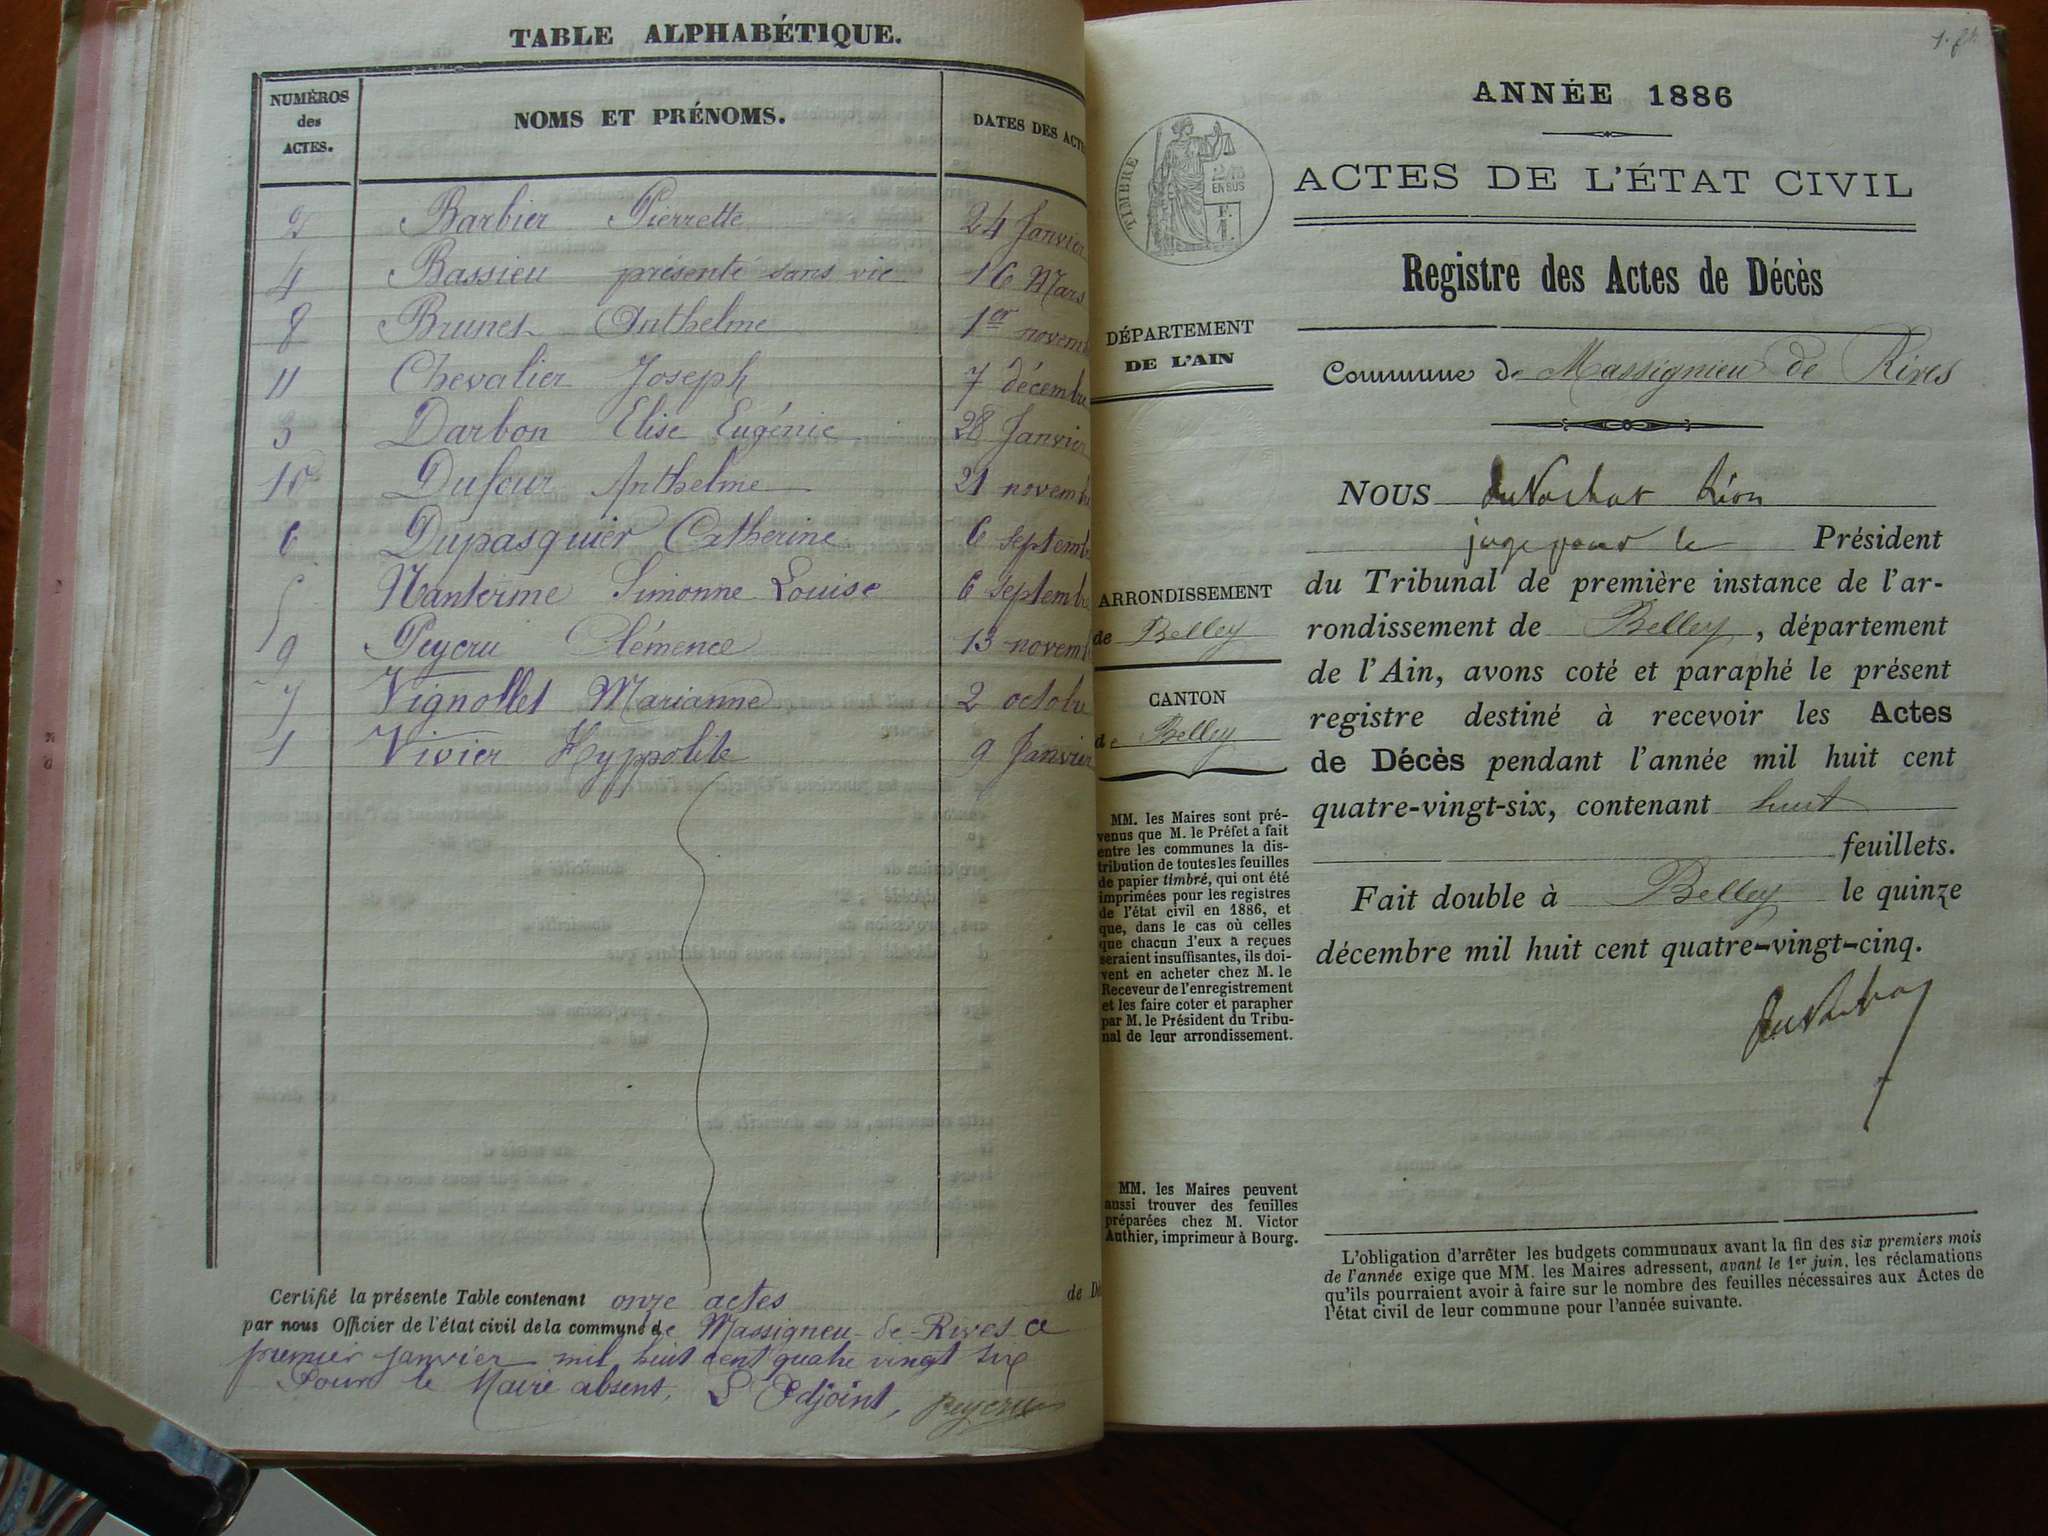 TABLE ALPHABÉTIQUE.
NUMÉROS des ACTES.
NOMS ET PRÉNOMS.
DATES DES ACTE
2 Barbier Pierrette 24 Janvier
4 Bassieu présenté sans vie 16 Mars
8 Brunet Anthelme 1er novemb
11 Chevalier Joseph 7 décembre
3 Darbon Elise Eugénie 28 Janvier
10 Dufour Anthelme 21 novemb
6 Dupasquier Catherine 6 septemb
5 Nanterme Simonne Louise 6 septemb
9 Peycru Clémence 13 novemb
7 Vignollet Marianne 2 octobre
1 Vivier Hyppolite 9 Janvier
Certifié la présente Table contenant onze actes de Dé
par nous Officier de l'état civil de la commune de Massigneu-de-Rives ce
premier janvier mil huit cent quatre vingt
Pour le Maire absent, L'Adjoint, Peycru
1. f.
ANNÉE 1886
TIMBRE
2/10
EN SUS
ACTES DE L'ÉTAT CIVIL
Registre des Actes de Décès
DÉPARTEMENT
DE L'AIN
Commune de Massignieu de Rives
NOUS
juge pour le Président
du Tribunal de première instance de l'ar-
rondissement de Belley, département
de l'Ain, avons coté et paraphé le présent
registre destiné à recevoir les Actes
de Décès pendant l'année mil huit cent
quatre-vingt-six, contenant huit
feuillets.
Fait double à Belley le quinze
décembre mil huit cent quatre-vingt-cinq.
ARRONDISSEMENT
de Belley
CANTON
de Belley
MM. les Maires sont pré-
venus que M. le Préfet a fait
entre les communes la dis-
tribution de toutes les feuilles
de papier timbré, qui ont été
imprimées pour les registres
de l'état civil en 1886, et
que, dans le cas où celles
que chacun d'eux a reçues
seraient insuffisantes, ils doi-
vent en acheter chez M. le
Receveur de l'enregistrement
et les faire coter et parapher
par M. le Président du Tribu-
nal de leur arrondissement.
MM. les Maires peuvent
aussi trouver des feuilles
préparées chez M. Victor
Authier, imprimeur à Bourg.
L'obligation d'arrêter les budgets communaux avant la fin des six premiers mois
de l'année exige que MM. les Maires adressent, avant le 1er juin, les réclamations
qu'ils pourraient avoir à faire sur le nombre des feuilles nécessaires aux Actes de
l'état civil de leur commune pour l'année suivante.